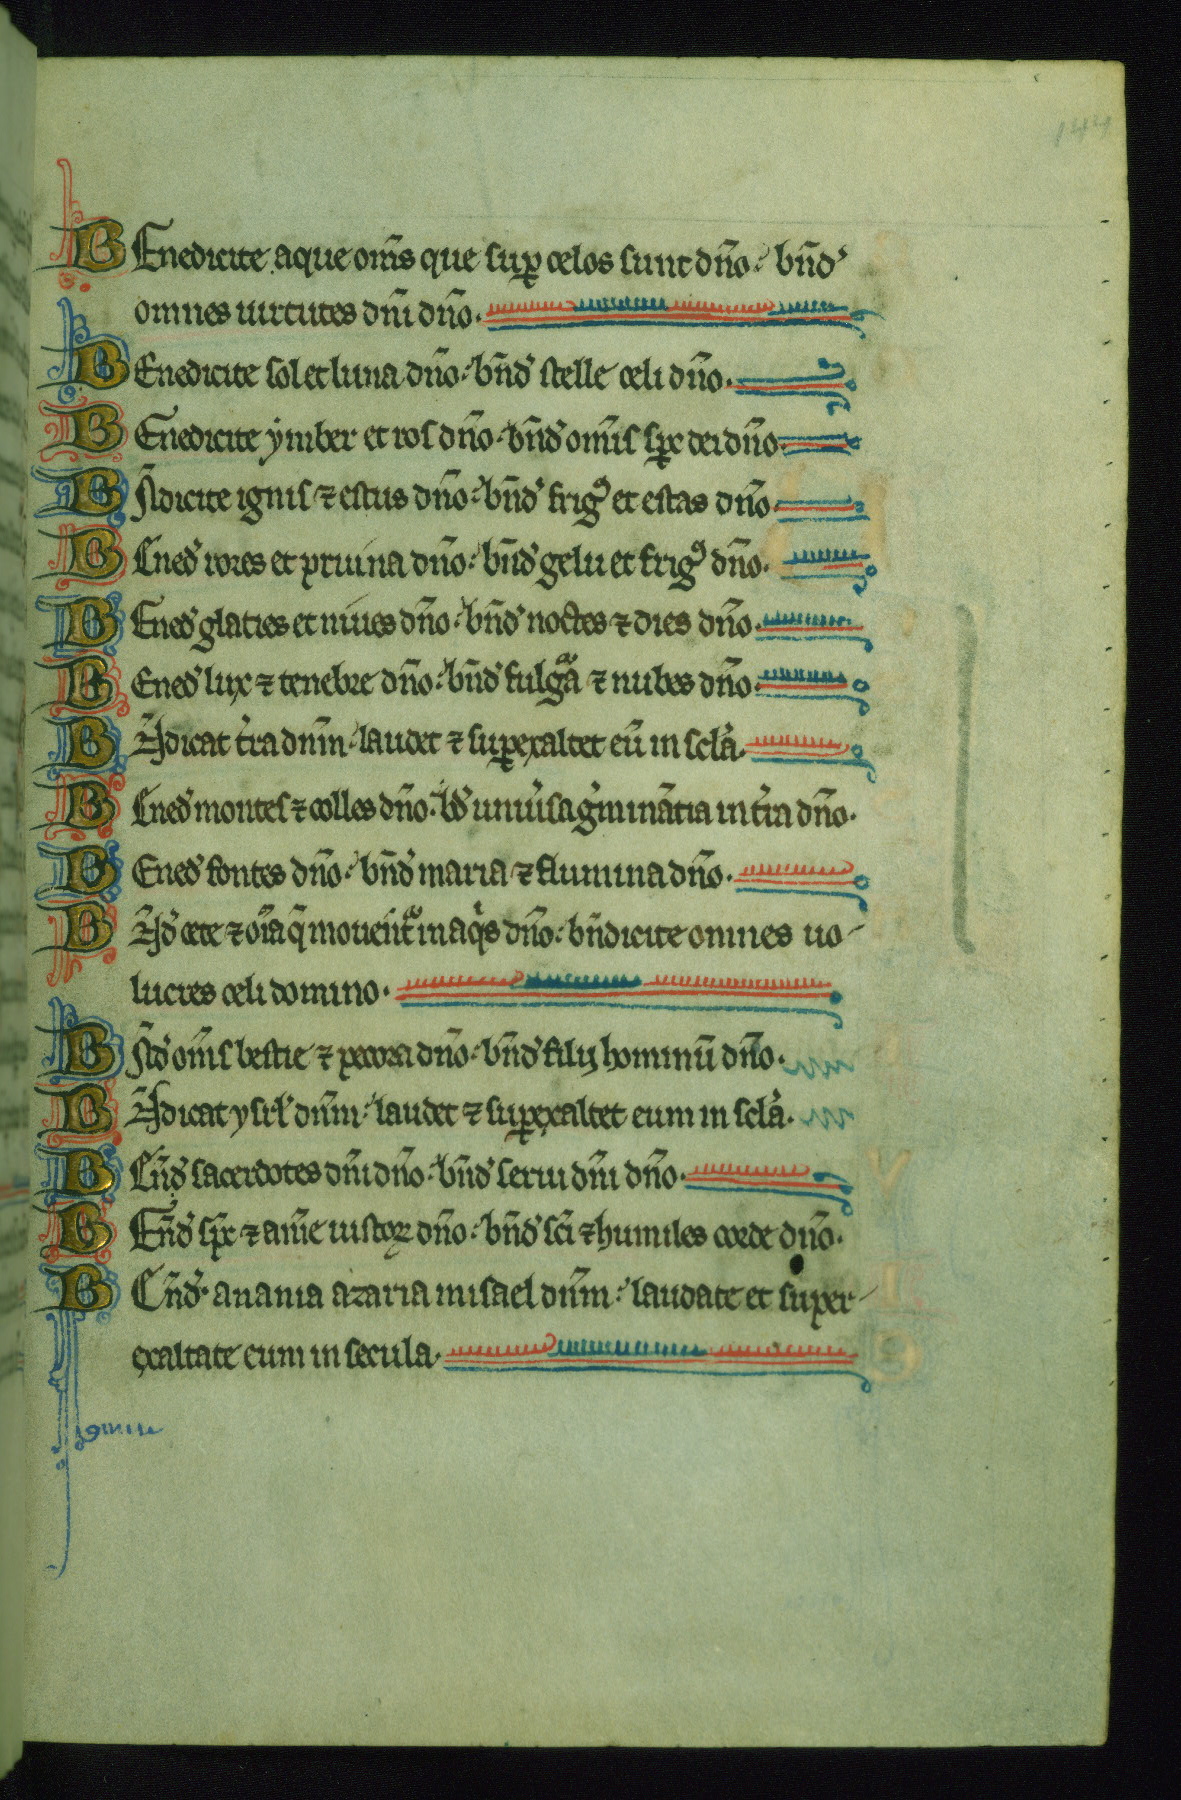 144
BEnedicite aque om̄s que sup̱ celos sunt dn̄o. bn̄d'
omnes uirtutes dn̄i dn̄o.
BEnedicite sol et luna dn̄o. bn̄d' stelle celi dn̄o.
BEnedicite ymber et ros dn̄o. bn̄d' om̄is sp̄c dei dn̄o.
Bn̄dicite ignis ⁊ estus dn̄o. bn̄d' frigꝰ et estas dn̄o.
BEned' rores et pruina dn̄o. bn̄d' gelu et frigꝰ dn̄o.
BEned' glacies et niues dn̄o. bn̄d' noctes ⁊ dies dn̄o.
BEned' lux ⁊ tenebre dn̄o. bn̄d' fulgᵃā ⁊ nubes dn̄o.
Bn̄dicat t'ra dn̄m. laudet ⁊ sup̱exaltet eū in scl'a.
BEned' montes ⁊ colles dn̄o. bd' uniu'sa g'minātia in t'ra dn̄o.
BEned' fontes dn̄o. bn̄d' maria ⁊ flumina dn̄o.
Bn̄d' cete ⁊ oīa q̄ mouent᷑ in aqis dn̄o. bn̄dicite omnes uo-
lucres celi domino.
Bn̄d' om̄s bestie ⁊ pecora dn̄o. bn̄d' filij hominū dn̄o.
Bn̄dicat ysrl' dn̄m. laudet ⁊ sup̱exaltet eum in scl'a.
BEn̄d' sacerdotes dn̄i dn̄o. bn̄d' serui dn̄i dn̄o.
BEn̄d' sp̄c ⁊ anīe iustoꝝ dn̄o. bn̄d' sc̄i ⁊ humiles corde dn̄o.
BEn̄d'. anania azaria misael dn̄m. laudate et super-
exaltate eum in secula.